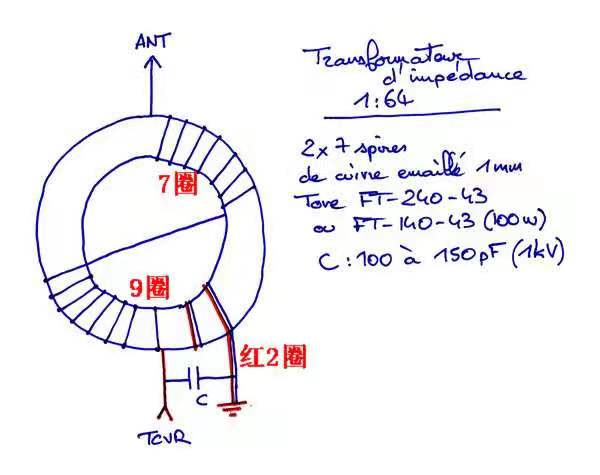 ANT
Transformateur
d'impédance
1:64
2x7 spires
de cuivre emaillé 1mm
Tore FT-240-43
ou FT-140-43 (100w)
C : 100 à 150pF (1kV)
7圈
9圈
红2圈
C
TCVR